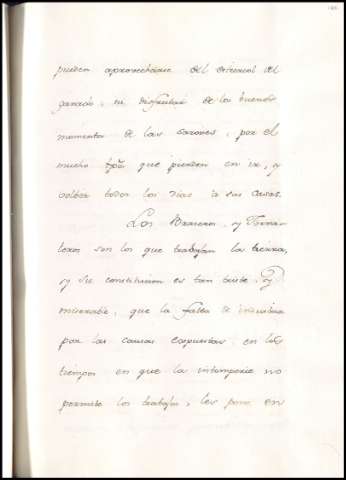 pueden aprovecharse del estiercol del
ganado, ni disfrutar de los buenos
momentos de las sazones, por el
mucho tpõ que pierden en ir, y
volber todos los dias a sus casas.
Los Braceros, y Jorna-
leros son los que trabajan la tierra,
y su constitucion es tan triste, y
miserable, que la falta de industria
por las causas expuestas en los
tiempos en que la intemperie no
permite los trabajos, les pone en